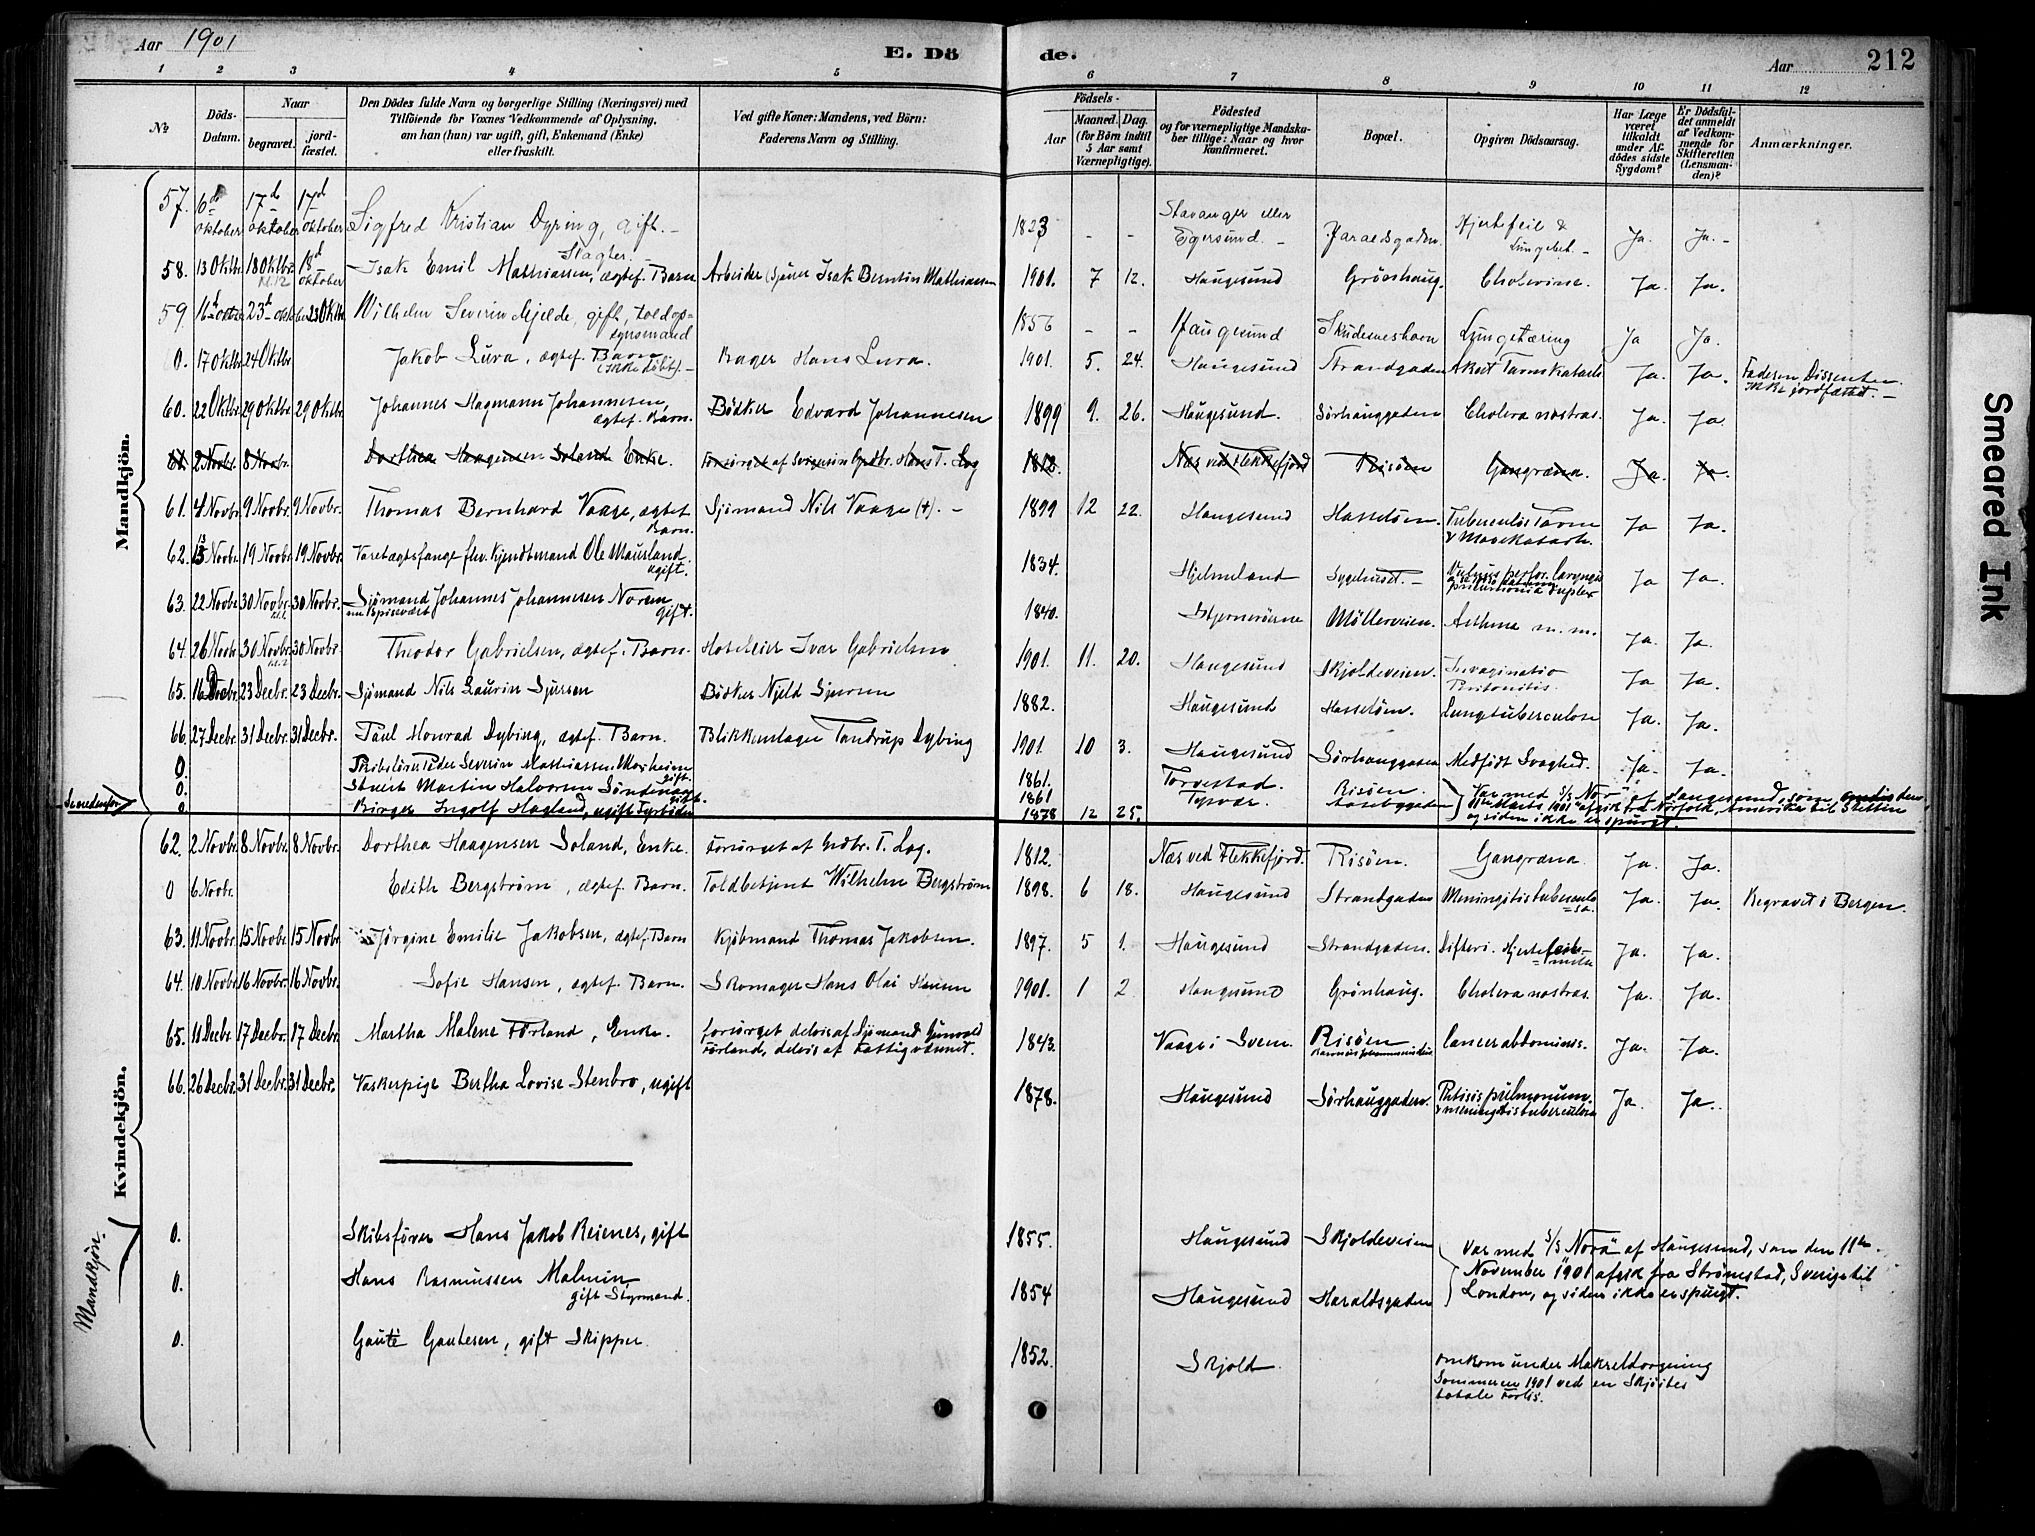 Aar 1901
E. Dö
de.
Aar
212
1 2 3 4 5 6 7 8 9 10 11 12
№
Döds-
Datum.
Naar
begravet.
jord-
fæstet.
Den Dödes fulde Navn og borgerlige Stilling (Næringsvei) med
Tilföiende for Voxnes Vedkommende af Oplysning,
om han (hun) var ugift, gift, Enkemand (Enke)
eller fraskilt.
Ved gifte Koner: Mandens, ved Börn:
Faderens Navn og Stilling.
Födsels-
Aar
Maaned. Dag.
(for Börn indtil
5 Aar samt
Værnepligtige).
Födested
og for værnepligtige Mandska-
ber tillige: Naar og hvor
konfirmeret.
Bopæl.
Opgiven Dödsaarsag.
Har Læge
været
tilkaldt
under Af-
dödes sidste
Sygdom?
Er Dödsfal-
det anmeldt
af Vedkom-
mende for
Skifteretten
(Lensman-
den)?
Anmærkninger.
Mandkjön.
57. 6d Oktober 17d Oktober 17d Oktober Sigfred Kristian Dyring, gift. Slagter. 1823 - - Stavanger eller Egersund. Haraldsgaden. Hjertefeil & Lungebet. Ja. Ja.
58. 13 Oktbr. 18 Oktbr. kl. 12 18d Oktober Isak Emil Mathiassen, ægtef. Barn Arbeider Isak Berntin Mathiassen 1901. 7 12. Haugesund Grönhaug. Cholerine. Ja. Ja.
59. 16d Oktbr. 23d Oktober 23 Oktbr. Wilhelm Severin Mjelde, gift, toldop=
synsmand 1856 - - Haugesund Skudesneshavn Lungetæring Ja Ja.
0. 17 Oktbr. 24 Oktbr. Jakob Lura, ægtef. Barn (ikke döbt). Bager Hans Lura. 1901. 5. 24. Haugesund Strandgaden Akut Tarmkatarh Ja. Ja. Faderen Dissenter.
Ikke jordfæstet.
60. 22 Oktbr. 29 Oktbr. 29 Oktbr. Johannes Hagmann Johannesen,
ægtef. Barn. Bödker Edvard Johannesen 1899 9. 26. Haugesund. Sörhauggaden Cholera nostras. Ja. Ja.
61 2 Novbr. 8 Novbr. Dorthea Haagensen Soland Enke. Forsörget af Svigersön Grdbr. Hans T. Log 1812. Næs ved Flekkefjord Risöen Gangræna. Ja. Ja.
61. 4 Novbr. 9 Novbr. 9 Novbr. Thomas Bernhard Vaage, ægtef.
Barn. Sjömand Nils Vaage (+). 1899 12 22. Haugesund Hasselöen. Tuberculös Tarm
& Mavekatarh. Ja Ja.
62. 13 Novbr. 19 Novbr. 19 Novbr. Varetægtsfange flev. Kjendtmand Ole Mausland
ugift. 1834. Hjelmeland Sygehuset. Vulnus perfor. laryngis
pneumonia duplex Ja Ja.
63. 22 Novbr. 30 Novbr. 30 Novbr. Sjömand Johannes Johannesen Norem
gift. 1840. Stjerneröerne Möllerveien. Asthma m. m. Ja. Ja.
64. 26 Novbr. 30 Novbr. 30 Novbr. Theodor Gabrielsen, ægtef. Barn. Hoteleier Ivar Gabrielsen 1901. 11. 20. Haugesund Skjoldeveien. Invaginatio
Peritonitis. Ja Ja.
65. 16 Decbr. 23 Decbr. 23 Decbr. Sjömand Nils Laurin Sjursen Bödker Njeld Sjursen 1882. Haugesund Hasselöen. Lungetuberculose Ja. Ja.
66. 27 Decbr. 31 Decbr. 31 Decbr. Paul Monrad Dybing, ægtef. Barn. Blikkenslager Tandrup Dybing 1901. 10 3. Haugesund Sörhauggaden Medfödt Svaghed. Ja. Ja.
0. Skibsförer Peder Severin Mathiassen Moxheim
gift. 1861. Torvestad. Risöen.
0. Stuert Martin Halvorsen Söndenaa
gift. 1861 Tysvær.
Se nedenfor 0 Birger Ingolf Hagland, ugift Fyrböder 1878 12 25.
Var med S/S "Nor" af Haugesund, som den
11te Marts 1901 afgik fra Norfolk, Amerika til Stettin
og siden ikke er spurgt.
Kvindekjön.
62. 2 Novbr. 8 Novbr. 8 Novbr. Dorthea Haagensen Soland, Enke. Forsörget af Grdbr. T. Log. 1812. Næs ved Flekkefjord. Risöen. Gangræna Ja. Ja.
0 6 Novbr. Edith Bergström, ægtef. Barn. Toldbetjent Wilhelm Bergström 1898. 6 18. Haugesund Strandgaden Meningitis tuberculo
=sa. Ja. Ja. Begravet i Bergen.
63. 11 Novbr. 15 Novbr. 15 Novbr. Jörgine Emilie Jakobsen, ægtef. Barn Kjöbmand Thomas Jakobsen. 1897. 5 1. Haugesund Strandgaden. Difteri. Ja. Ja.
64. 10 Novbr. 16 Novbr. 16 Novbr. Sofie Hansen, ægtef. Barn. Skomager Hans Olai Hansen 1901. 1 2. Haugesund Grönhaug. Cholera nostras. Ja. Ja.
65. 11 Decbr. 17 Decbr. 17 Decbr. Martha Malene Förland, Enke. forsörget delvis af Sjömand Gunvald
Förland, delvis af Fattigvæsenet. 1843. Vaage i Sveen. Risöen Cancer abdominis. Ja. Ja.
66. 26 Decbr. 31 Decbr. 31 Decbr. Vaskerpige Bertha Lovise Stenbro, ugift 1878. Haugesund Sörhauggaden. Phtisis pulmonum.
& meningitis tuberculosa Ja. Ja.
Mandkjön.
0. Skibsförer Hans Jakob Reienes, gift 1855. Haugesund Skjoldeveien
0. Hans Rasmussen Malmin
gift Styrmand. 1854 Haugesund Haraldsgaden
Var med S/S "Nora" af Haugesund, som den 11te
November 1901 afgik fra Strömstad, Sverige til
London, og siden ikke er spurgt.
0. Gaute Gautesen, gift Skipper. 1852. Skjold. Omkom under Makreldorgning
Sommeren 1901 ved en Skjöites
totale Forlis.
Smeared Ink